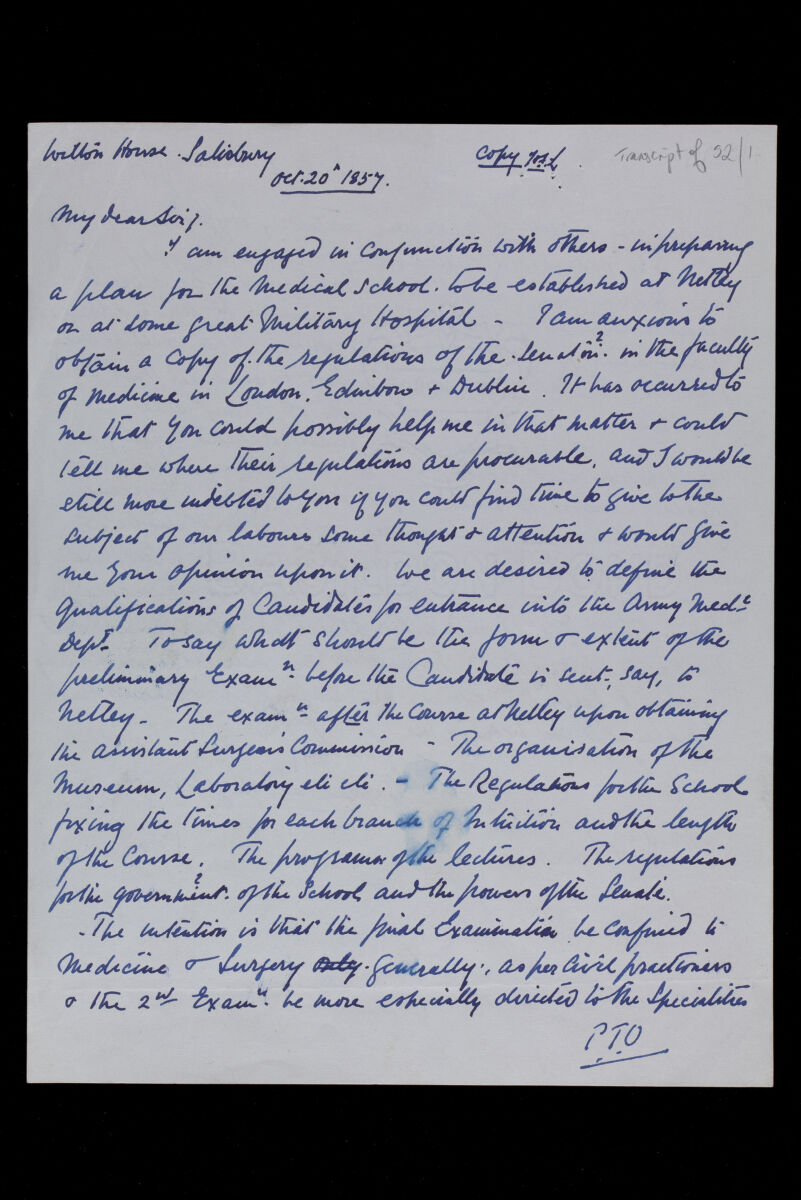 Wilton House. Salisbury
Copy
Transcript of 32/1
Oct. 20th 1857.
My dear Sir,
I am engaged in conjunction with others - in preparing
a plan for the Medical School. to be established at Netley
or at some great Military Hospital - I am anxious to
obtain a Copy of the regulations of the Senator? in the faculty
of Medicine in London, Edinboro + Dublin. It has occurred to
me that you could possibly help me in that matter + could
tell me where their regulations are procurable, and I would be
still more indebted to you if you could find time to give to the
subject of our labours some thought + attention + would give
me your opinion upon it. We are desired to define the
qualifications of Candidates for entrance into the Army Medl
Dept. To say what should be the form + extent of the
preliminary Examn before the Candidate is sent, say, to
Netley - The examn after the Course at Netley upon obtaining
the Assistant Surgeon's Commission - The organisation of the
Museum, Laboratory etc etc. - The Regulations for the School
fixing the times for each branch of Intuition and the length
of the Course. The programme of the lectures. The regulations
for the government? of the School and the powers of the Senate.
- The intention is that the final Examination be confined to
Medicine + Surgery only generally, as per Civil practioners
+ the 2nd Examn be more especially directed to the Specialities
P.T.O